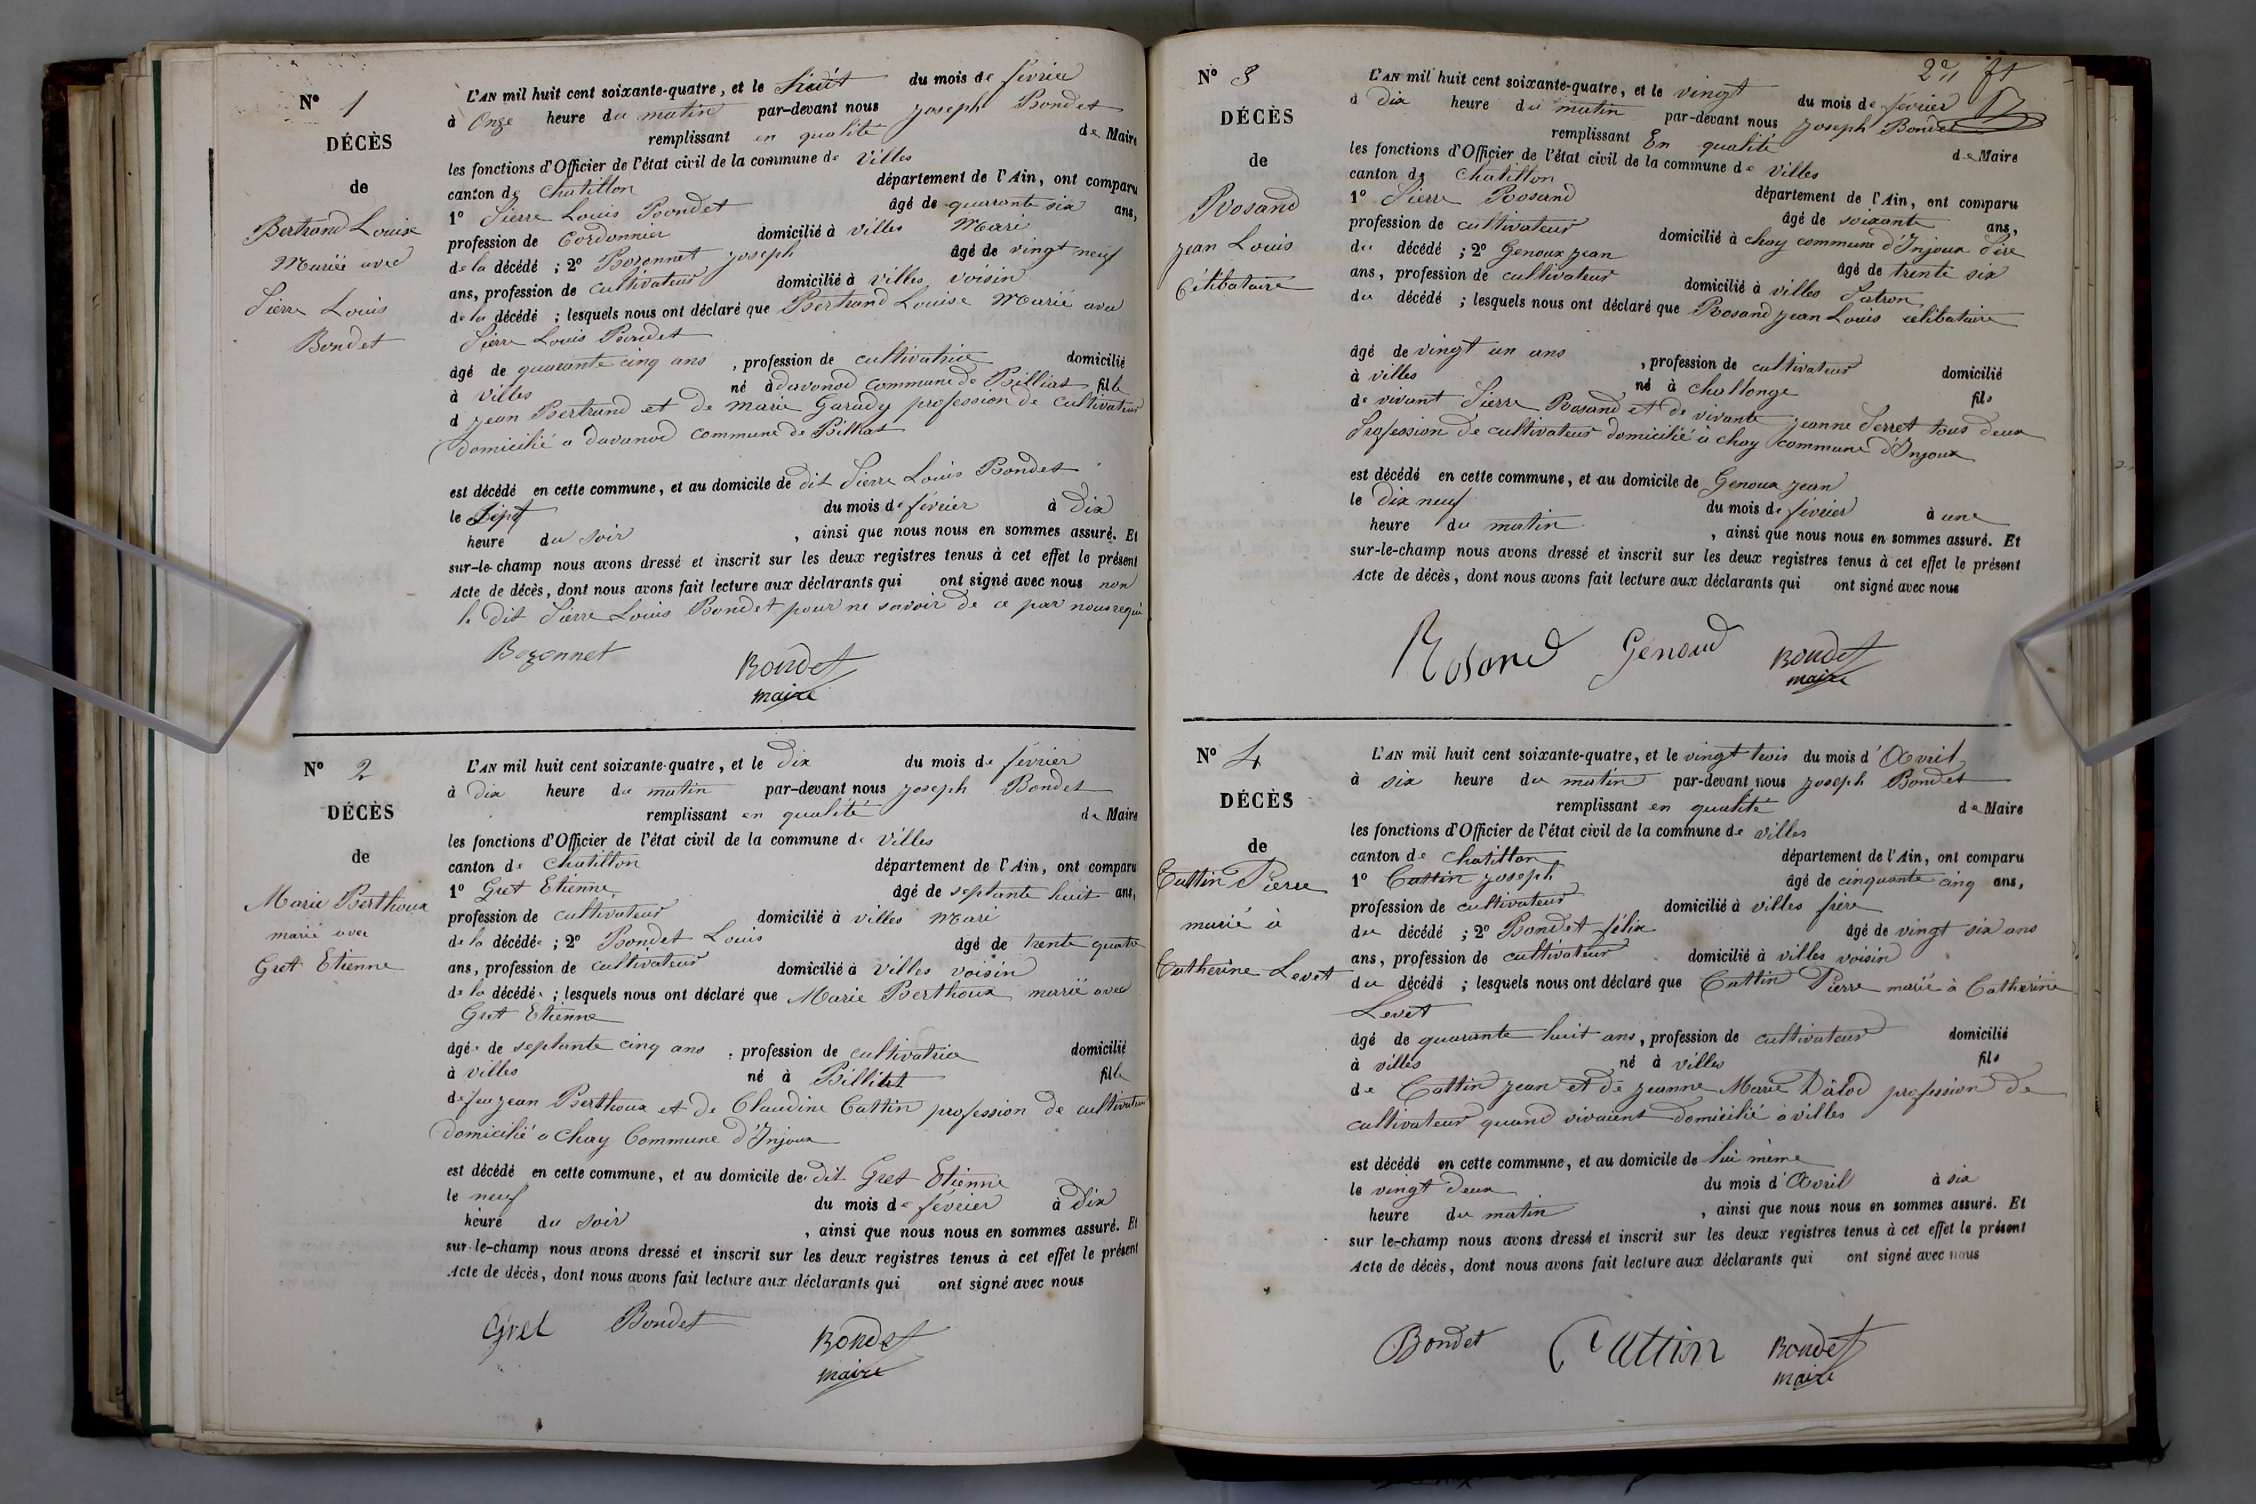 N° 1
DÉCÈS
de
Bertrand Louise
Mariée avec
Pierre Louis
Bondet
L'AN mil huit cent soixante-quatre, et le huit du mois de février
à Onze heure du matin par-devant nous joseph Bondet
remplissant en qualité de Maire
les fonctions d'Officier de l'état civil de la commune de Villes
canton de Chatillon département de l'Ain, ont comparu
1° Pierre Louis Bondet âgé de quarante six ans,
profession de Cordonnier domicilié à villes Mari
de la décédé ; 2° Bozonnet joseph âgé de vingt neuf
ans, profession de cultivateur domicilié à villes voisin
de la décédé ; lesquels nous ont déclaré que Bertrand Louise Marié avec
Pierre Louis Bondet
âgé de quarante cinq ans, profession de cultivatrice domicilié
à villes né à davanod commune de Billiat fille
d jean Bertrand et de marie Garady profession de cultivateur
domicilié a davanod commune de Billiat
est décédé en cette commune, et au domicile de dit Pierre Louis Bondet
le Sept du mois de février à dix
heure du soir, ainsi que nous nous en sommes assuré. Et
sur-le-champ nous avons dressé et inscrit sur les deux registres tenus à cet effet le présent
Acte de décès, dont nous avons fait lecture aux déclarants qui ont signé avec nous non
le dit Pierre Louis Bondet pour ne savoir de ce par nous requi
Bozonnet Bondet
maire
N° 2
DÉCÈS
de
Marie Berthoux
marié avec
Gret Etienne
L'AN mil huit cent soixante-quatre, et le dix du mois de février
à dix heure du matin par-devant nous joseph Bondet
remplissant en qualité de Maire
les fonctions d'Officier de l'état civil de la commune de Villes
canton de Chatillon département de l'Ain, ont comparu
1° Gret Etienne âgé de septante huit ans,
profession de cultivateur domicilié à villes Mari
de la décédé ; 2° Bondet Louis âgé de trente quatre
ans, profession de cultivateur domicilié à villes voisin
de la décédé ; lesquels nous ont déclaré que Marie Berthoux marié avec
Gret Etienne
âgé de septante cinq ans, profession de cultivatrice domicilié
à villes né à Billiat fille
de feu jean Berthoux et de Claudine Cattin profession de cultivateur
domicilié a Chay Commune d'Injoux
est décédé en cette commune, et au domicile de dit Gret Etienne
le neuf du mois de février à dix
heure du soir, ainsi que nous nous en sommes assuré. Et
sur-le-champ nous avons dressé et inscrit sur les deux registres tenus à cet effet le présent
Acte de décès, dont nous avons fait lecture aux déclarants qui ont signé avec nous
Gret Bondet Bondet
maire
N° 3
DÉCÈS
de
Rosand
jean Louis
Célibataire
L'AN mil huit cent soixante-quatre, et le vingt du mois de février
à dix heure du matin par-devant nous joseph Bondet
remplissant En qualité de Maire
les fonctions d'Officier de l'état civil de la commune de villes
canton de Chatillon département de l'Ain, ont comparu
1° Pierre Rosand âgé de soixante ans,
profession de cultivateur domicilié à chay commune d'Injoux Père
du décédé ; 2° Genoux jean âgé de trente six
ans, profession de cultivateur domicilié à villes Patron
du décédé ; lesquels nous ont déclaré que Rosand jean Louis celibataire
âgé de vingt un ans, profession de cultivateur domicilié
à villes né à challonge fils
de vivant Pierre Rosand et de vivante jeanne Perret tous deux
Profession de cultivateur domicilié à chay commune d'Injoux
est décédé en cette commune, et au domicile de Genoux jean
le dix neuf du mois de février à une
heure du matin, ainsi que nous nous en sommes assuré. Et
sur-le-champ nous avons dressé et inscrit sur les deux registres tenus à cet effet le présent
Acte de décès, dont nous avons fait lecture aux déclarants qui ont signé avec nous
Rosand Genoud Bondet
maire
N° 4
DÉCÈS
de
Cattin Pierre
marié à
Catherine Levet
L'AN mil huit cent soixante-quatre, et le vingt trois du mois d'Avril
à six heure du matin par-devant nous joseph Bondet
remplissant en qualité de Maire
les fonctions d'Officier de l'état civil de la commune de villes
canton de chatillon département de l'Ain, ont comparu
1° Cattin joseph âgé de cinquante cinq ans,
profession de cultivateur domicilié à villes frère
du décédé ; 2° Bondet félix âgé de vingt six ans
ans, profession de cultivateur domicilié à villes voisin
du décédé ; lesquels nous ont déclaré que Cattin Pierre marié à Cathérine
Levet
âgé de quarante huit ans, profession de cultivateur domicilié
à villes né à villes fils
de Cattin jean et de jeanne Marie Dalod profession de
cultivateur quand vivaient domicilié à villes
est décédé en cette commune, et au domicile de lui même
le vingt deux du mois d'Avril à six
heure du matin, ainsi que nous nous en sommes assuré. Et
sur le-champ nous avons dressé et inscrit sur les deux registres tenus à cet effet le présent
Acte de décès, dont nous avons fait lecture aux déclarants qui ont signé avec nous
Bondet Cattin Bondet
maire